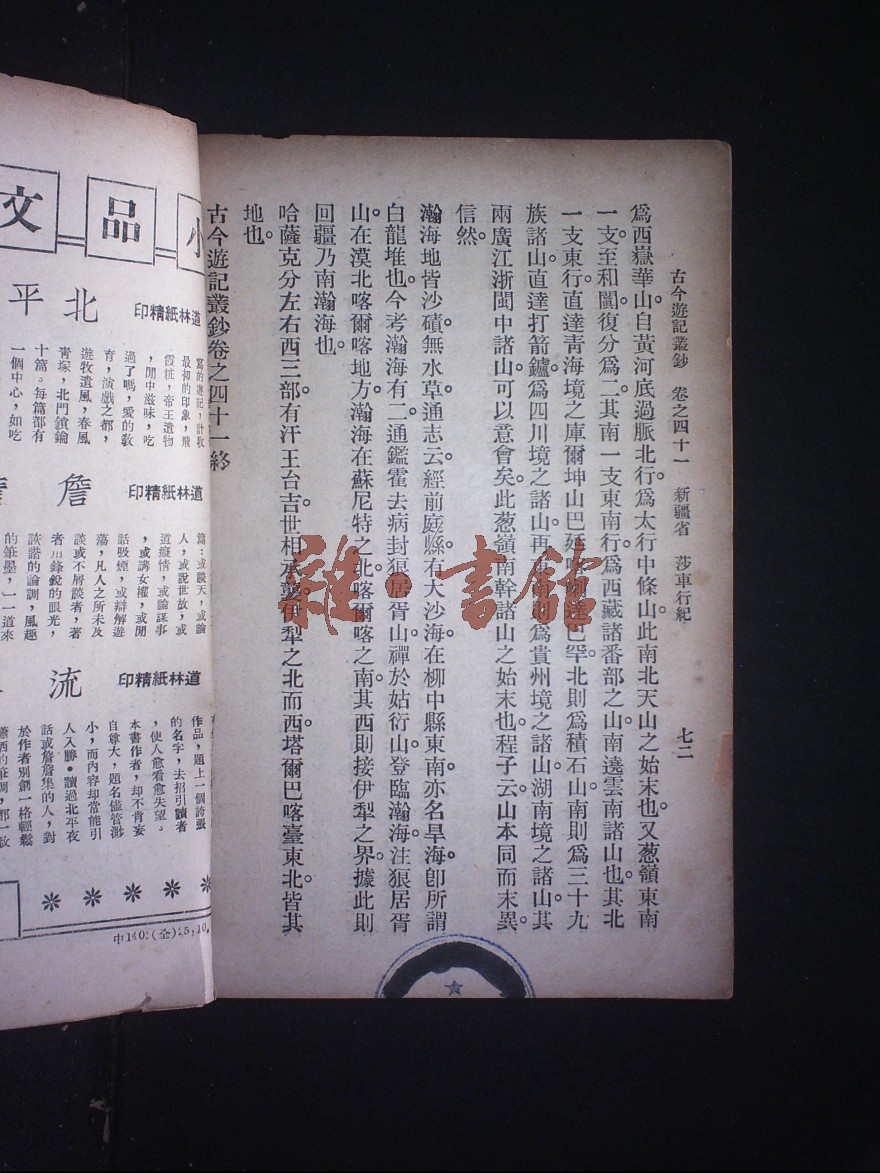 古今遊記叢鈔 卷之四十一 新疆省 莎車行紀 七二
爲西嶽華山。自黃河底過脈北行。爲太行中條山。此南北天山之始末也。又葱嶺東南
一支。至和闐。復分爲二。其南一支東南行。爲西藏諸番部之山。南邊雲南諸山也。其北
一支東行。直達青海境之庫爾坤山巴延喀喇達巴罕。北則爲積石山。南則爲三十九
族諸山。直達打箭鑪。爲四川境之諸山。再東南則爲貴州境之諸山。湖南境之諸山。其
兩廣江浙閩中諸山。可以意會矣。此葱嶺南幹諸山之始末也。程子云。山本同而末異。
信然。
瀚海地皆沙磧。無水草。通志云。經前庭縣。有大沙海。在柳中縣東南。亦名旱海。卽所謂
白龍堆也。今考瀚海有二。通鑑霍去病封狼居胥山。禪於姑衍山。登臨瀚海。注狼居胥
山。在漠北喀爾喀地方。瀚海在蘇尼特之北。喀爾喀之南。其西則接伊犁之界。據此則
回疆乃南瀚海也。
哈薩克分左右西三部。有汗王台吉。世相承襲。伊犁之北而西。塔爾巴喀臺東北。皆其
地也。
古今遊記叢鈔卷之四十一終
雜·書館
小品文
北平
道林紙精印
寫的遊記，計收
最初的印象，飛
霞粧，帝王遺物
，閒中滋味，吃
過了嗎，愛的敎
育，演戲之都，
遊牧遺風，春風
靑塚，北門鎖鑰
十篇。每篇都有
一個中心，如吃
詹
道林紙精印
篇：或談天，或論
人，或說世故，或
道癡情，或論謀事
，或講女權，或閒
話股煙，或辯解遊
蕩，凡人之所未及
談或不屑談者，著
者用鋒銳的眼光，
詼諧的論調，風趣
的筆墨，一一道來
流
道林紙精印
作品，題上一個誇張
的名字，去招引讀者
，使人愈看愈失望。
本書作者，却不肯妄
自尊大，題名儘管渺
小，而內容却常能引
人入勝。讀過北平夜
話或詹詹集的人，對
於作者別創一格輕鬆
中140:(全)25,10,